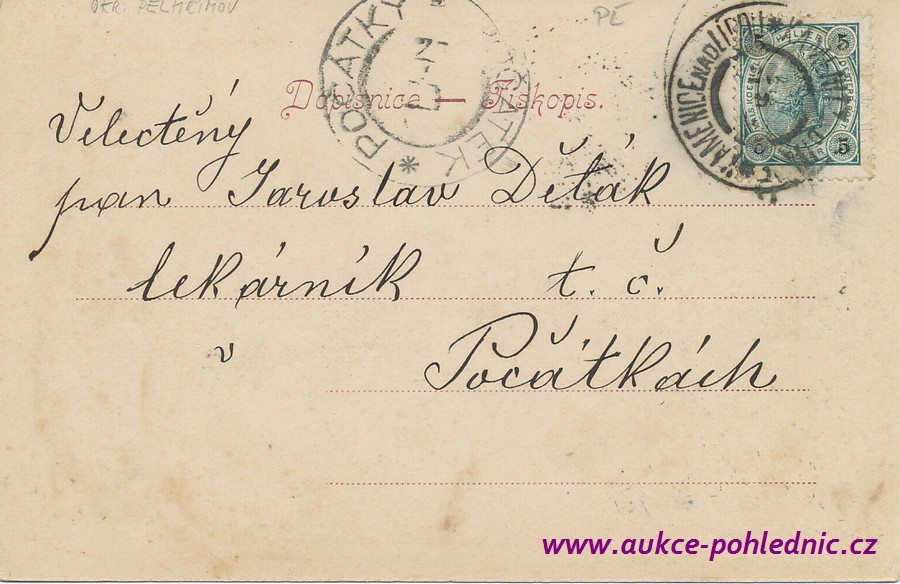 OKR. PELHŘIMOV
PE
POČÁTKY
KAMENICE NAD LIPOU
5 5
5 5
Dopisnice — Tiskopis.
Velectěný
pan Jaroslav Děták
lekárník t. č.
v Počátkách
www.aukce-pohlednic.cz